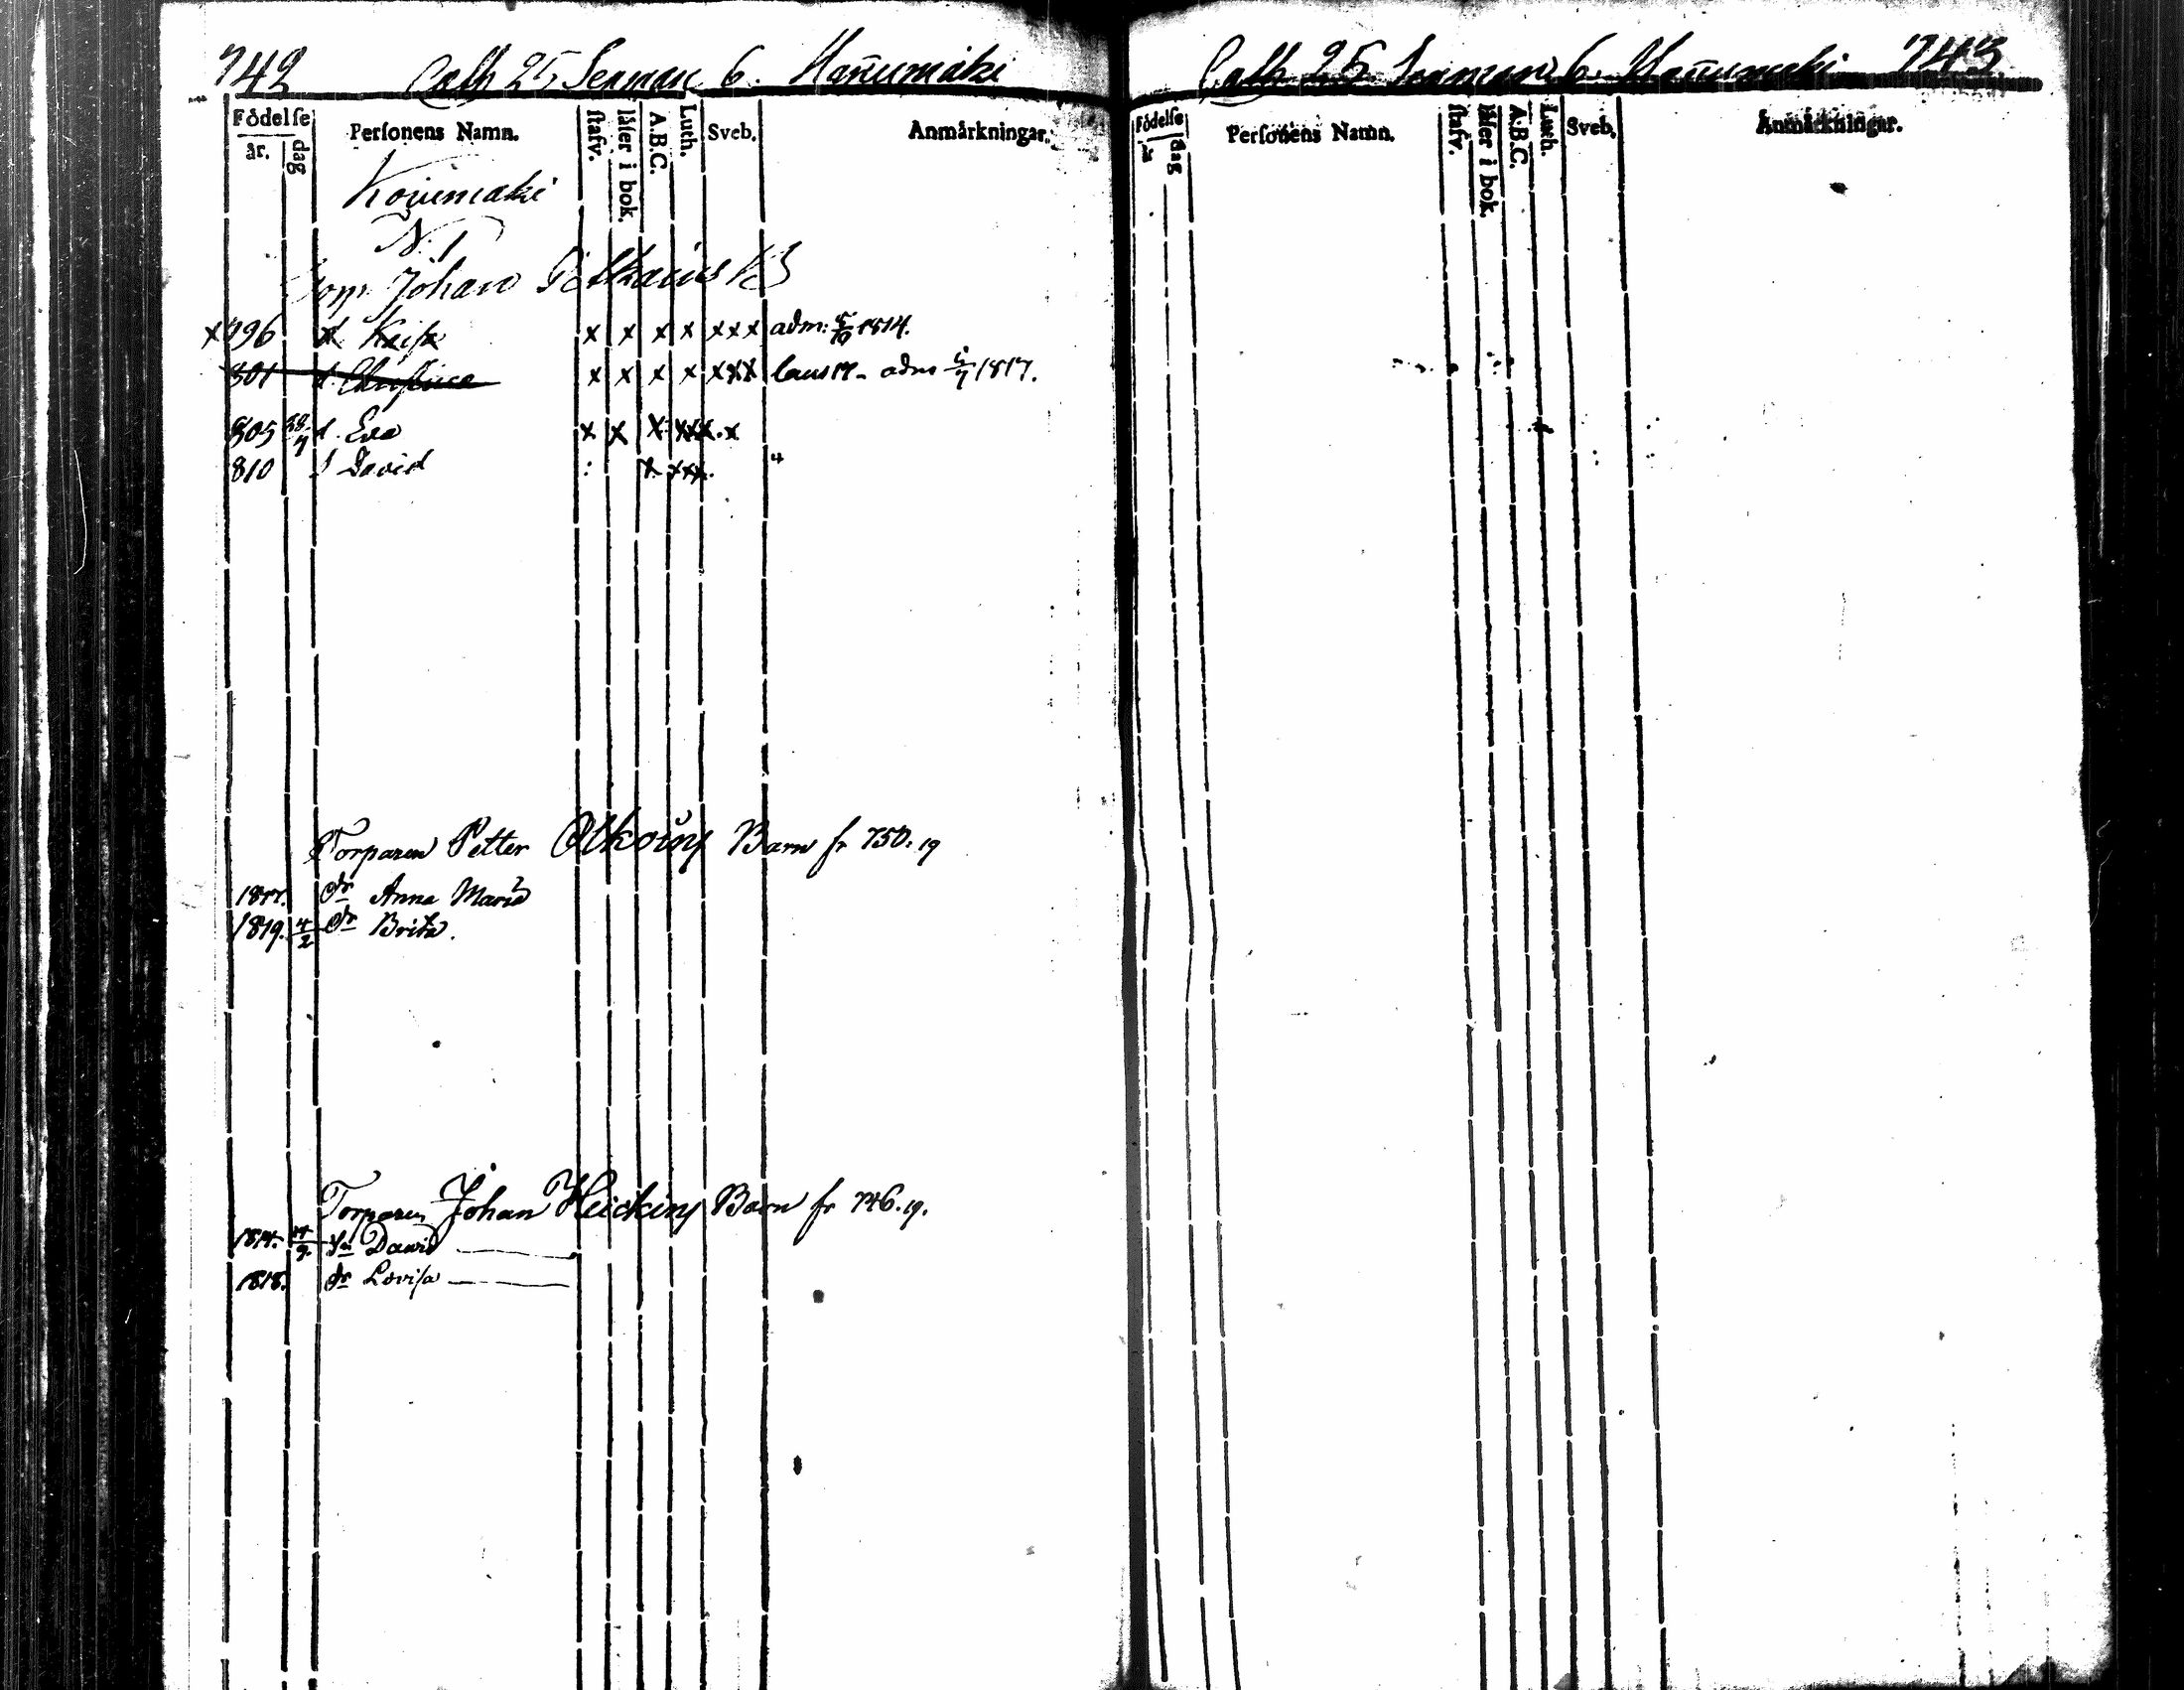 742 Cath 25 Seaman 6. Hañumäki
Födelse
år. dag Personens Namn. stafv. läser i bok. A.B.C. Luth. Sveb. Anmärkningar.
Koiumäki
N. 1
Torp. Johan
x 796 d Kaisa x x x x x x x adm: 1814.
801 d. Christina x x x x x x x adm 1817.
805 d. Eva x x x x x x . x
810 s David : x x x x .
Torparen Petter Olkoiny Barn fr 750. 19
1817. dr Anna Maria
1819. 4/2 dr Brita.
Torparen Johan Heickiny Barn fr 746. 19.
1814. sn David
1818. dr Lovisa
Cath 25 Seaman 6. Hañumäki 743
Födelse
år dag Personens Namn. stafv. läser i bok. A.B.C. Luth. Sveb. Anmärkningar.